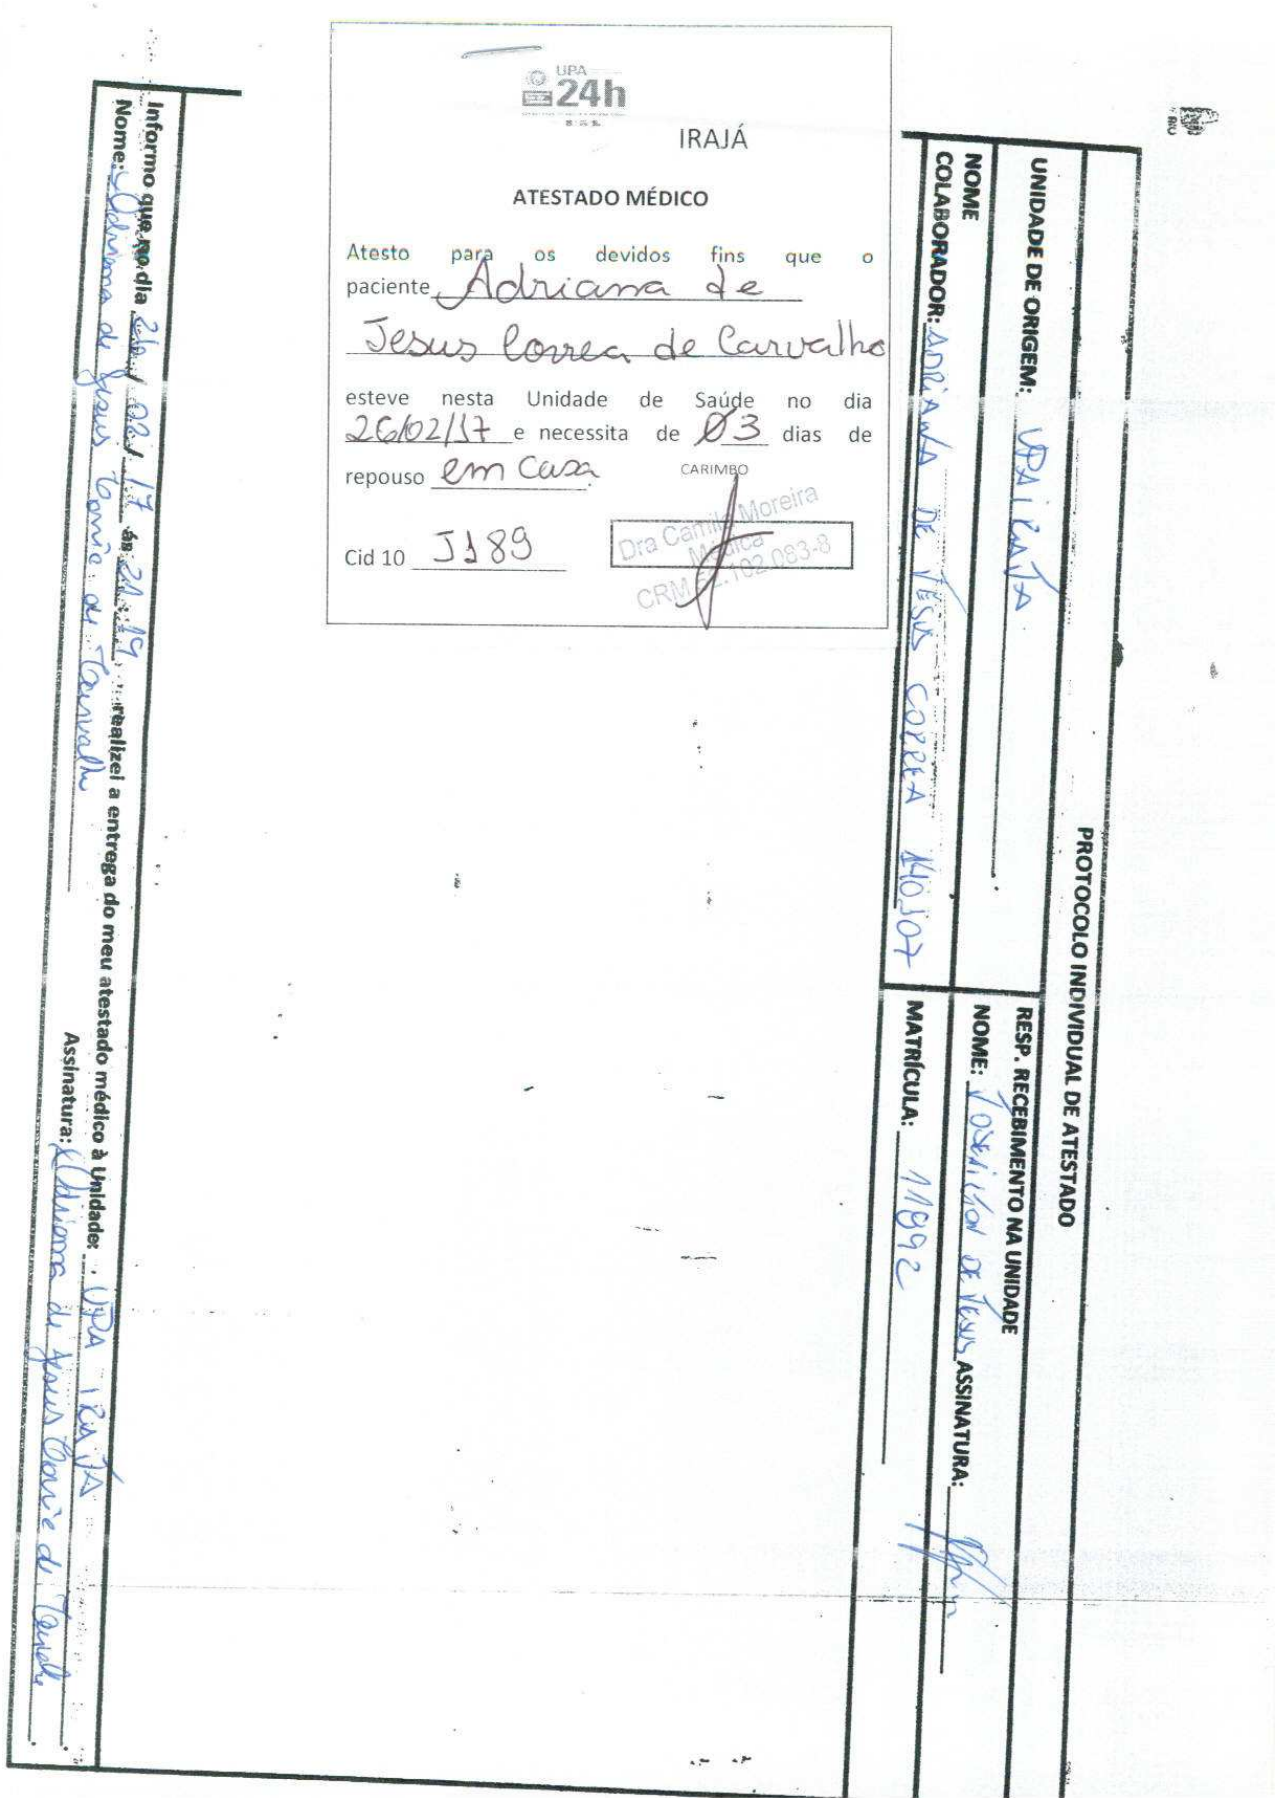 UPA
24h
IRAJÁ
ATESTADO MÉDICO
Atesto para os devidos fins que o
paciente Adriana de
Jesus Correa de Carvalho
esteve nesta Unidade de Saúde no dia
26/02/17 e necessita de 03 dias de
repouso em casa
CARIMBO
Dra Camila Moreira
Médica
CRM 52.102.083-8
Cid 10 J189
PROTOCOLO INDIVIDUAL DE ATESTADO
UNIDADE DE ORIGEM: UPA IRAJA
RESP. RECEBIMENTO NA UNIDADE
NOME: DE JESUS ASSINATURA:
NOME
COLABORADOR: ADRIANA DE JESUS CORREA 140107
MATRÍCULA: 11892
Informo que no dia 26/02/17 ás 21:19, realizei a entrega do meu atestado médico à Unidade: UPA IRAJA
Nome: Adriana de Jesus Correia de Carvalho Assinatura: Adriana de Jesus Correia de Carvalho